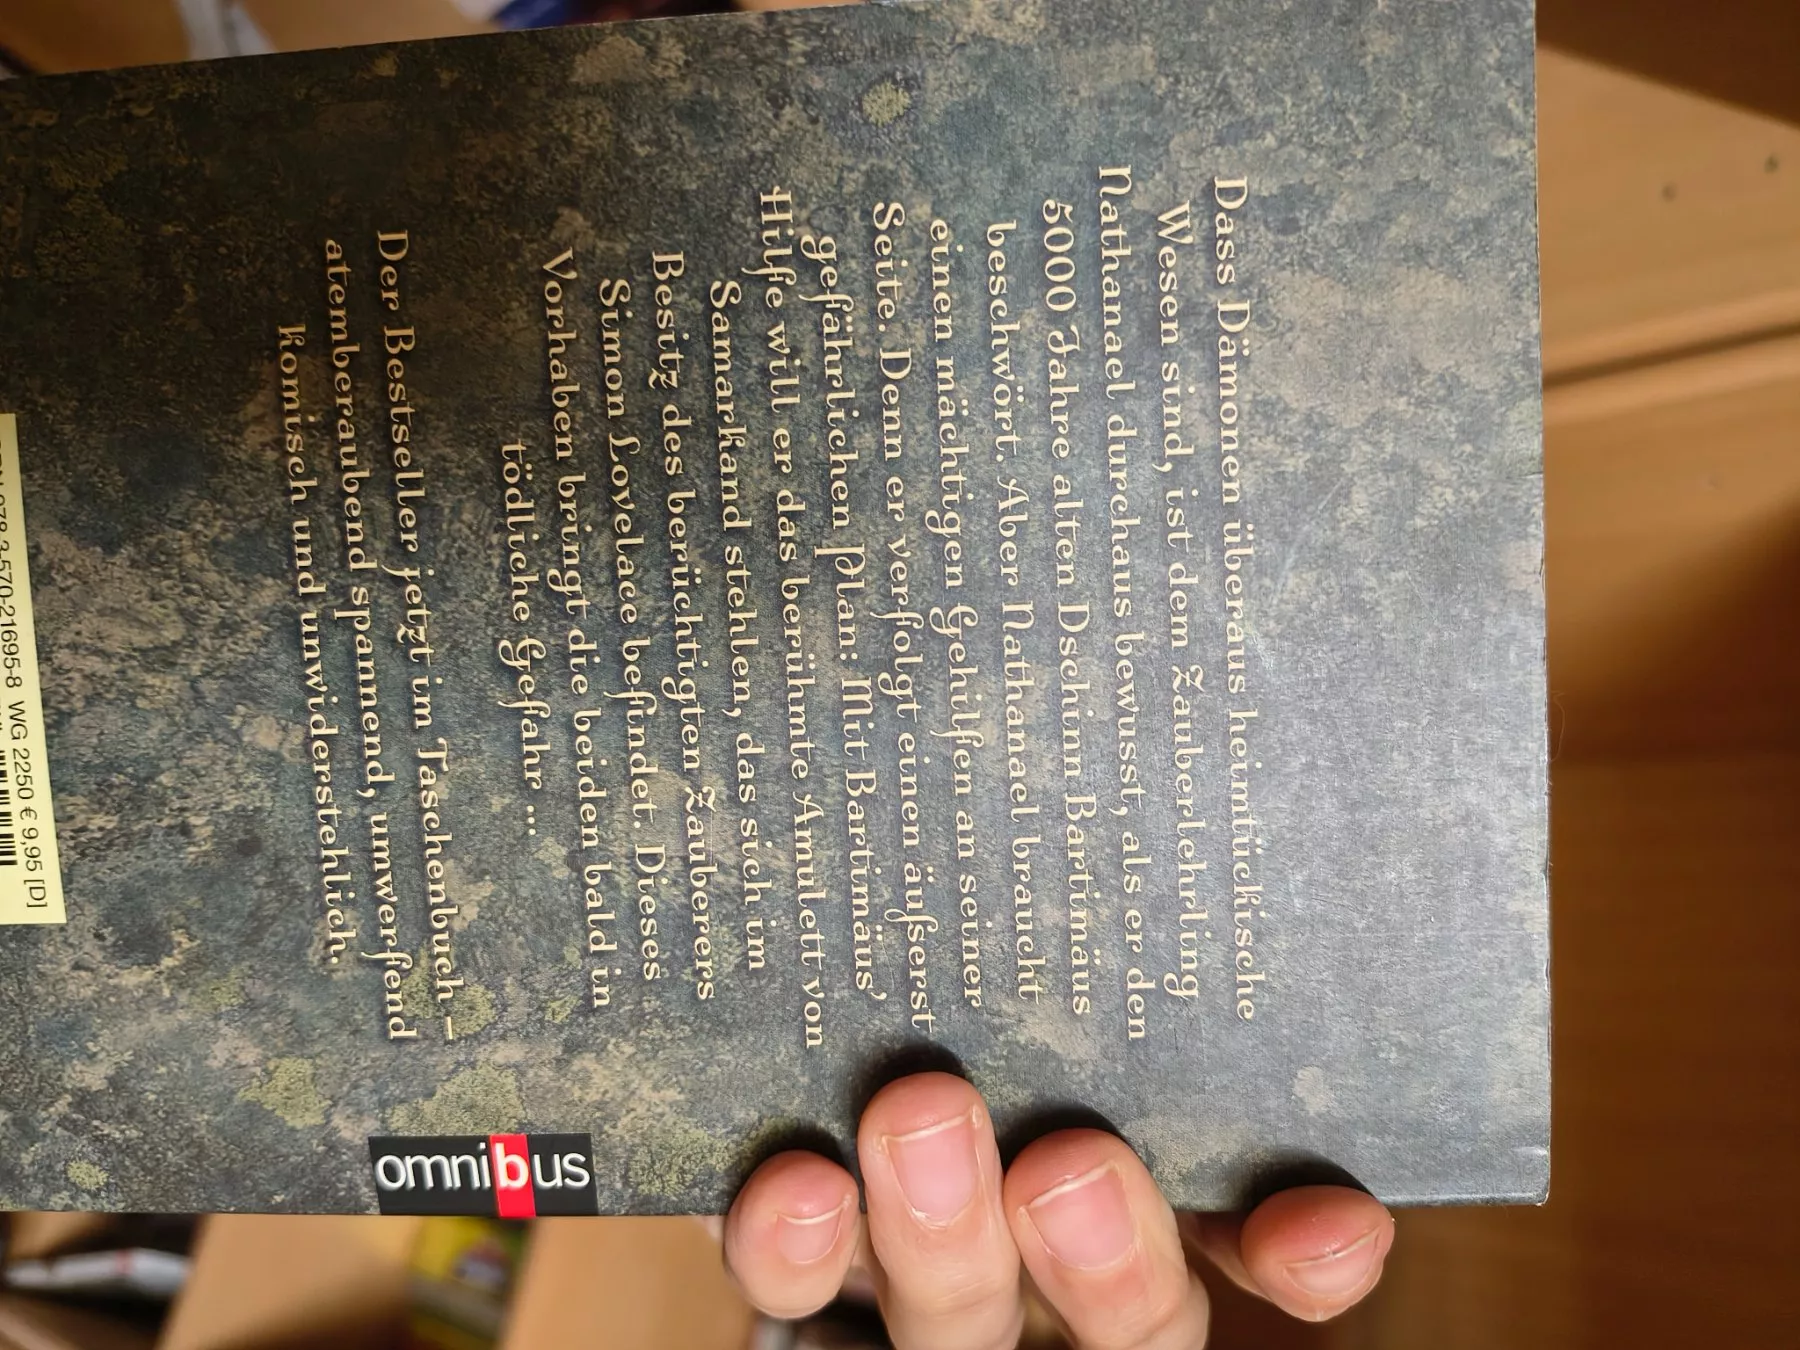 Dass Dämonen überaus heimtückische
Wesen sind, ist dem Zauberlehrling
Nathanael durchaus bewusst, als er den
5000 Jahre alten Dschinn Bartimäus
beschwört. Aber Nathanael braucht
einen mächtigen Gehilfen an seiner
Seite. Denn er verfolgt einen äußerst
gefährlichen Plan: Mit Bartimäus’
Hilfe will er das berühmte Amulett von
Samarkand stehlen, das sich im
Besitz des berüchtigten Zauberers
Simon Lovelace befindet. Dieses
Vorhaben bringt die beiden bald in
tödliche Gefahr ...
Der Bestseller jetzt im Taschenbuch –
atemberaubend spannend, umwerfend
komisch und unwiderstehlich.
WG 2250 € 9,95 [D]
omnibus